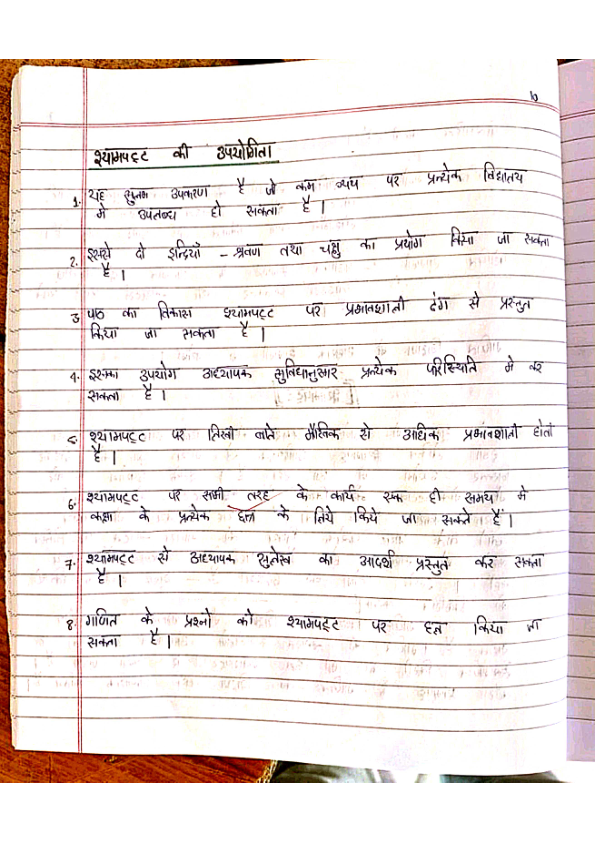 श्यामपट्ट की उपयोगिता
1. यह सुलभ उपकरण है जो कम व्यय पर प्रत्येक विद्यालय
मे उपलब्ध हो सकता है ।
2. इससे दो इन्द्रियाँ - श्रवण तथा चक्षु का प्रयोग किया जा सकता
है ।
3 पाठ का विकास श्यामपट्ट पर प्रभावशाली ढंग से प्रस्तुत
किया जा सकता है ।
4. इसका उपयोग अध्यापक सुविधानुसार प्रत्येक परिस्थिति मे कर
सकता है ।
5 श्यामपट्ट पर लिखी बाते मौखिक से अधिक प्रभावशाली होती
है ।
6. श्यामपट्ट पर सभी तरह के कार्य एक ही समय मे
कक्षा के प्रत्येक छात्र के लिये किये जा सकते हैं ।
7. श्यामपट्ट से अध्यापक सुलेख का आदर्श प्रस्तुत कर सकता
है ।
8. गणित के प्रश्नो को श्यामपट्ट पर हल किया जा
सकता है ।